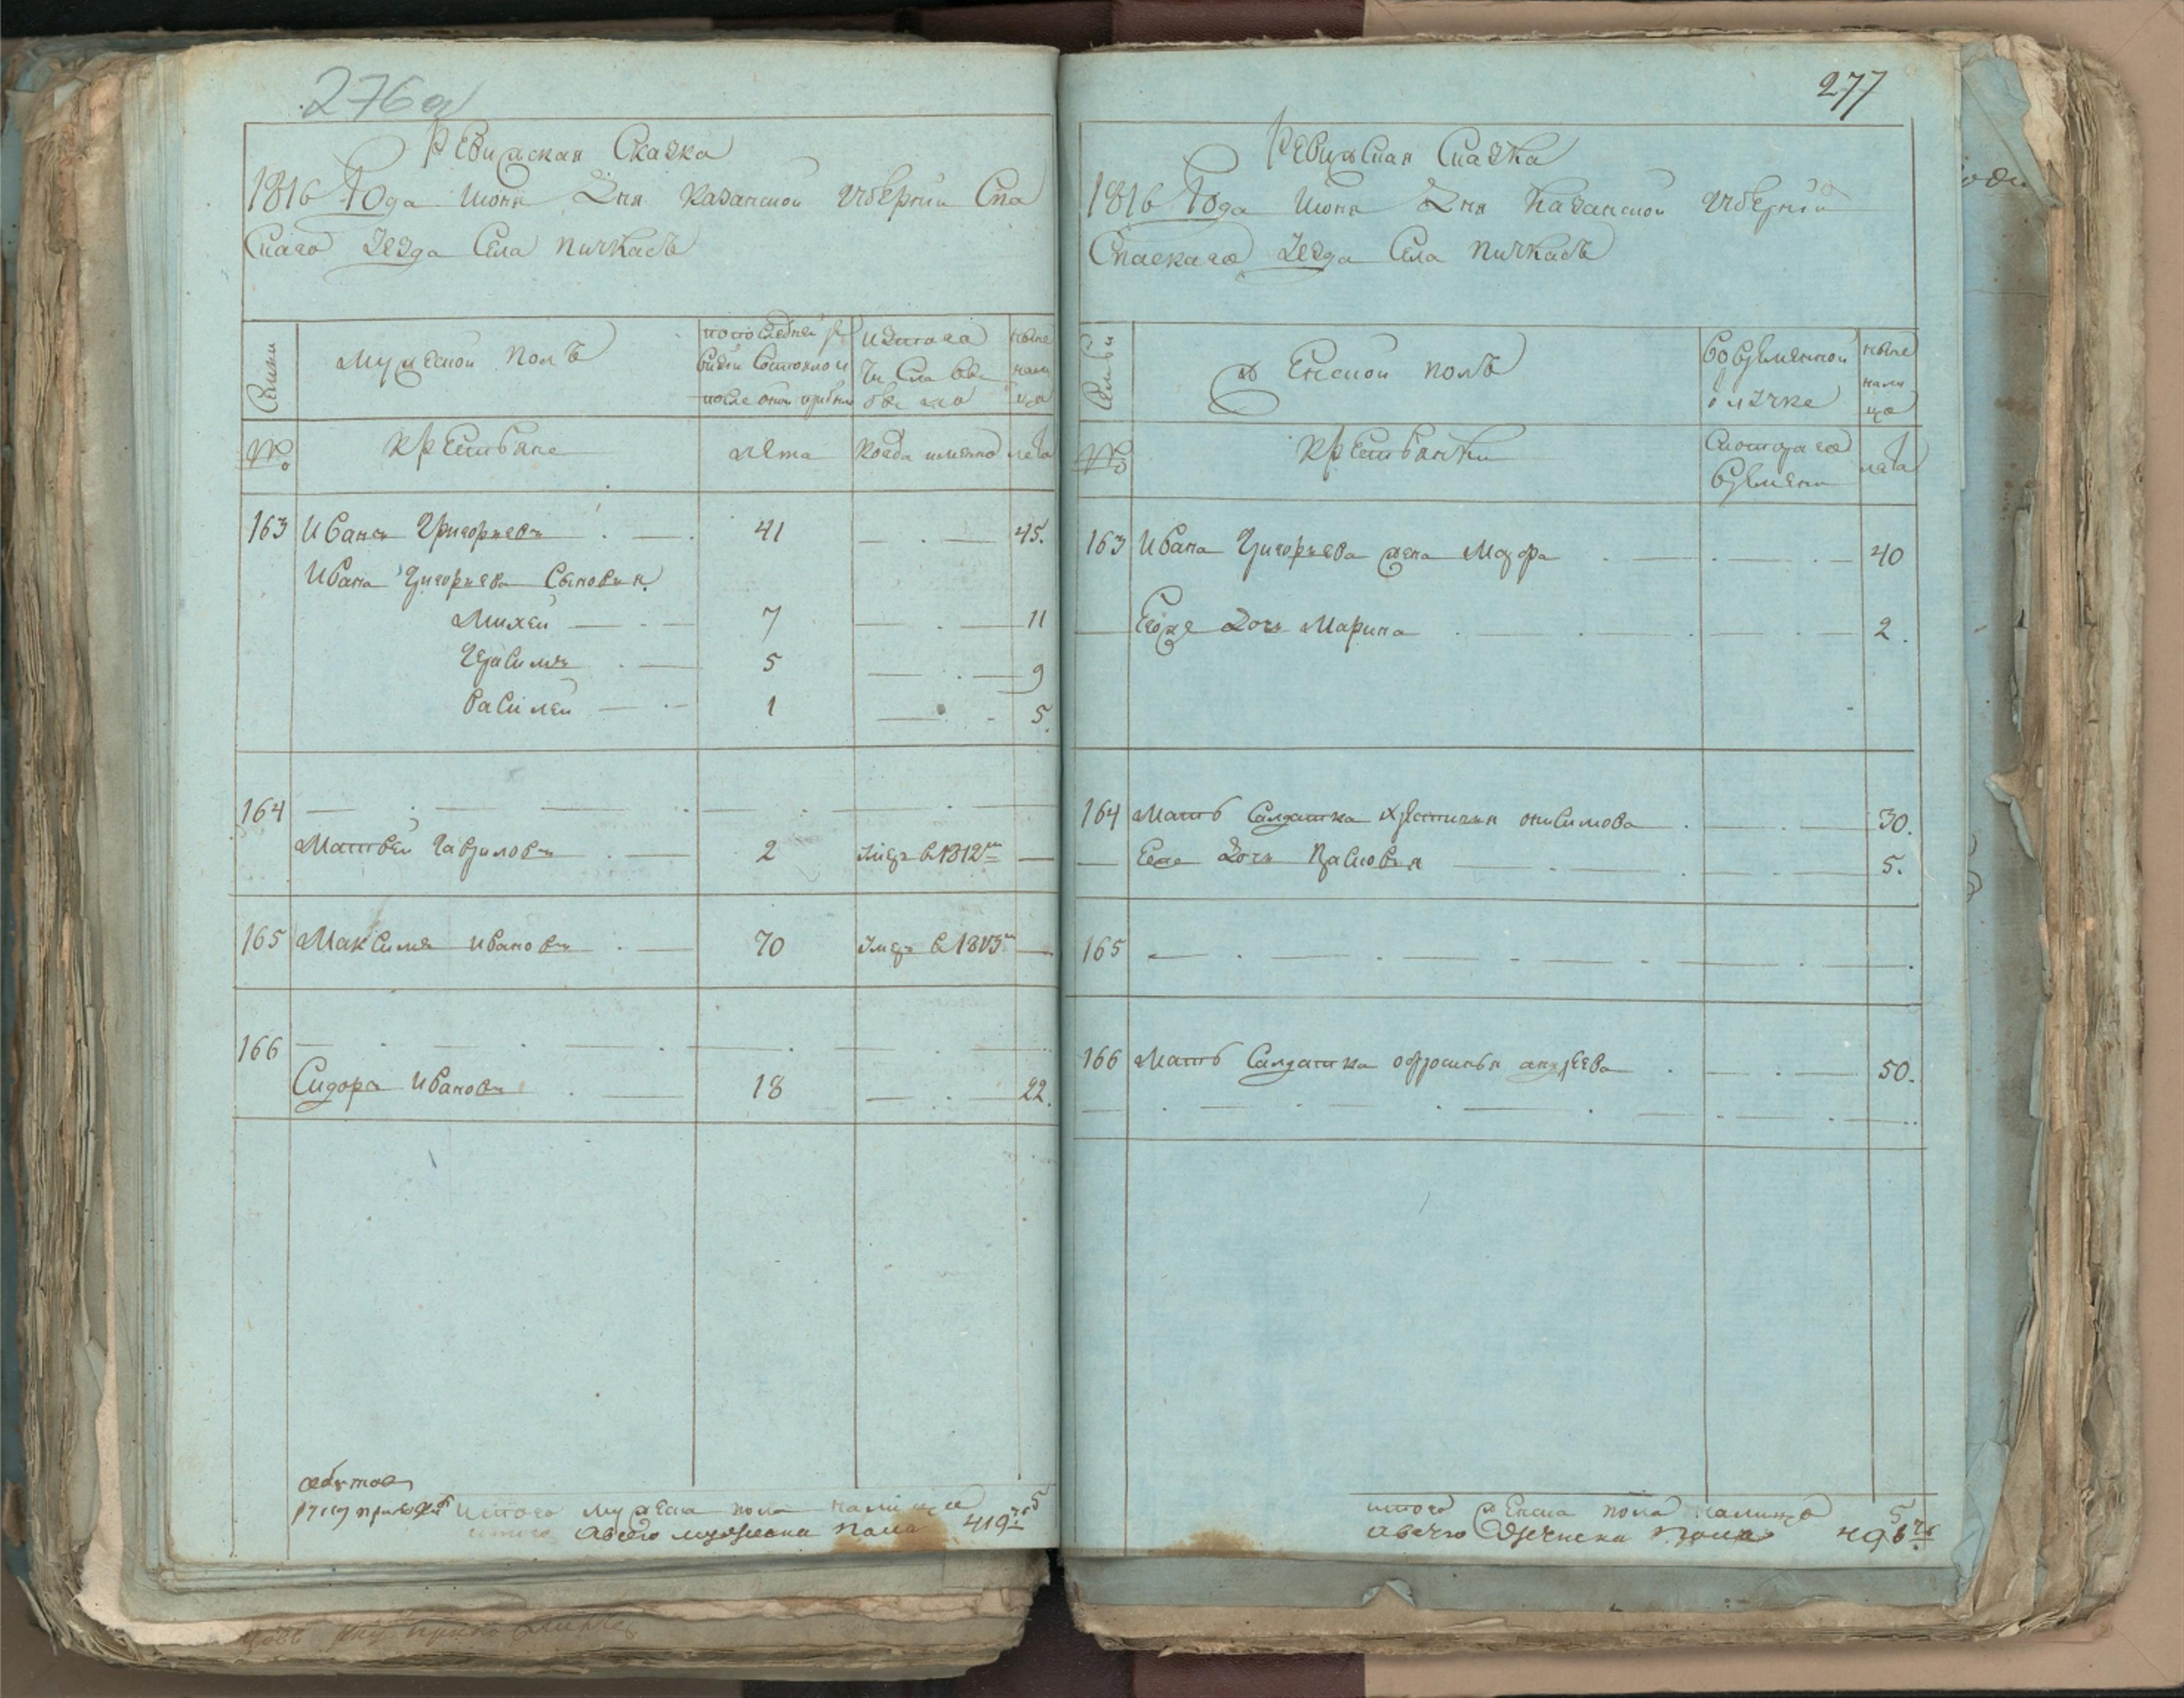 276 об
Ревижская Сказка
1816 Года июня Дня Казанской губернии Спа
скаго уезда Села пичкасъ
Семьи
Мужеской полъ
по последней ре
визии состояло и
после оной прибыло
из того
числа вы
было
ныне
нали
цо
№
крестьяне
лета
когда имянно
лета
163 Иванъ Григорьевъ 41 45.
Ивана Григорьева Сыновья
Михей 7 11
Герасимъ 5 9
Василей 1 5
164
Матвей Гавриловъ 2 умеръ в 1812м
165 Максимъ Ивановъ 70 умеръ в 1813м
166
Сидоръ Ивановъ 18 22.
итого мужеска пола налицо 5
а всего мужеска пола 419
277
Ревижская Сказка
1816 Года Июня Дня Казанской губернии
Спаскаго уезда Села пичкасъ
Семьи
Женской полъ
во временной
отлучке
ныне
нали
цо
№
крестьянки
с котораго
времени
лета
163 Ивана Григорьева жена Мавра 40
Ево же дочь Марина 2.
164 Мать Салдатка Христинья онисимова 30.
Ее дочь Прасковья 5.
165
166 Мать Салдатка офросинья андреева 50.
итого женска пола налицо 5
а всего женска пола